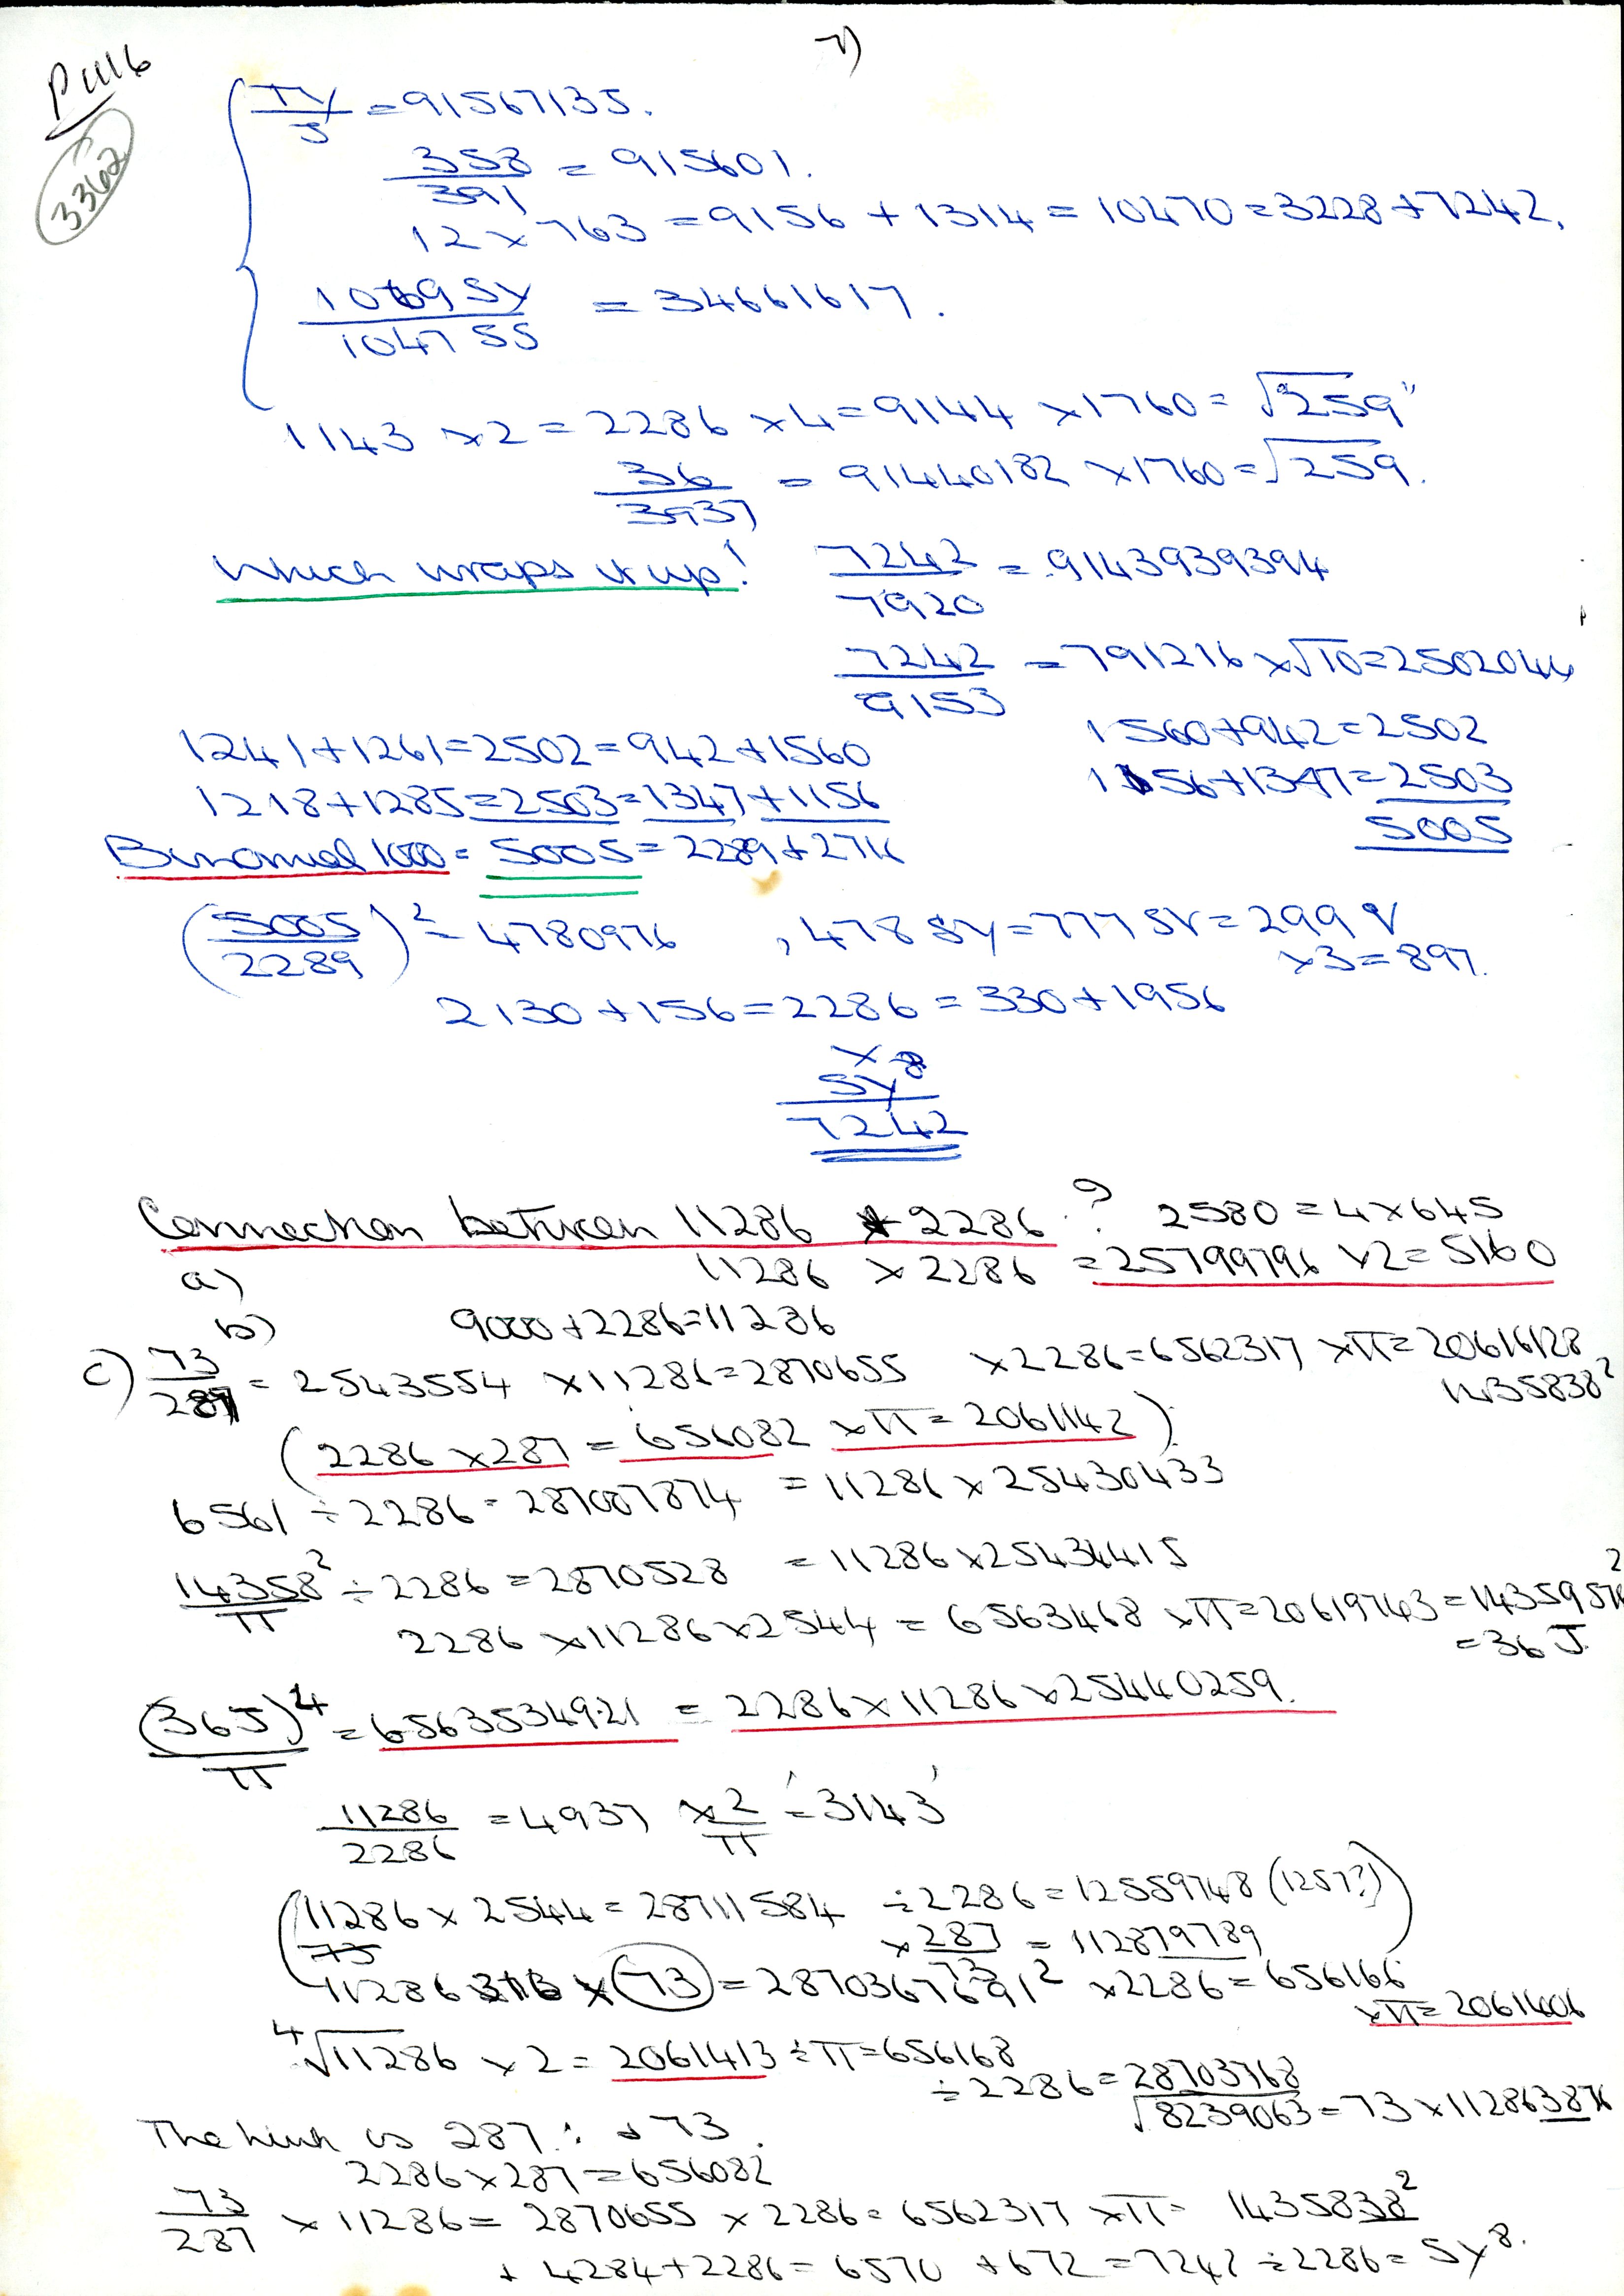 7)
P1116
3362
TY/J = 91567135.
358/391 = 915601.
12 x 763 = 9156 + 1314 = 10470 = 3228 + 7242.
10769 SY/104755 = 34661617.
1143 x 2 = 2286 x 4 = 9144 x 1760 = √259"
36/3937 = 91440182 x 1760 = √259.
Which wraps it up! 7242/7920 = .9143939394
7242/9153 = 791216 x √10 = 2502044
1241 + 1261 = 2502 = 942 + 1560
1560 + 942 = 2502
1218 + 1285 = 2503 = 1347 + 1156
1156 + 1347 = 2503
5005
Binomial 1000 = 5005 = 2289 + 2716
(5005/2289)² = 4780976 , 478 SY = 777 SV = 299 V
x 3 = 897.
2130 + 156 = 2286 = 330 + 1956
x
SY⁸
7242
Connection between 11286 + 2286 ? 2580 = 4 x 645
a) 11286 x 2286 = 25799796 x 2 = 5160
b) 9000 + 2286 = 11286
c) 73/287 = 2543554 x 11286 = 2870655 x 2286 = 6562317 x π = 20616128
1435838²
(2286 x 287 = 656082 x π = 2061142)
6561 ÷ 2286 = 287007874 = 11286 x 25430433
14358²/π ÷ 2286 = 2870528 = 11286 x 25434415
2286 x 11286 x 2544 = 6563468 x π = 20619743 = 14359576²
= 36 J.
(36J)⁴/π = 6563534921 = 2286 x 11286 x 25440259.
11286/2286 = 4937 x 2/π = '3143'
(11286 x 2544 = 28711584 ÷ 2286 = 12559748 (1257?))
x 287/73 = 112879789
11286 x 73 = 2870367691² x 2286 = 656166
x π = 2061406
⁴√11286 x 2 = 2061413 ÷ π = 656168
÷ 2286 = 28703768
√8239063 = 73 x 112863876
The link is 287 : + 73.
2286 x 287 = 656082
73/287 x 11286 = 2870655 x 2286 = 6562317 x π = 1435838²
+ 4284 + 2286 = 6570 + 672 = 7242 ÷ 2286 = SY⁸.